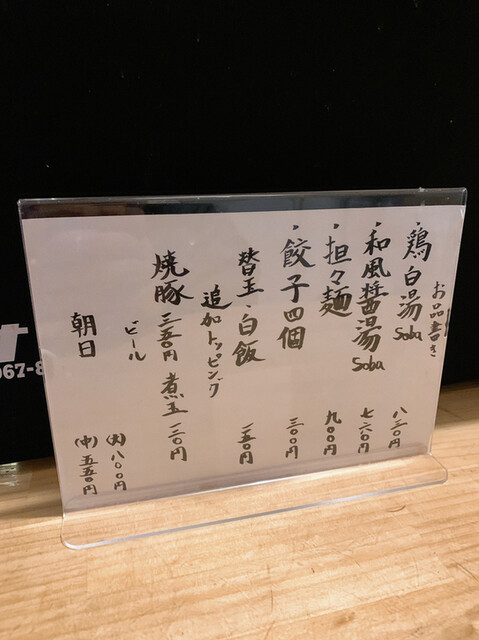 お品書き
・鶏白湯 Soba 八三〇円
・和風醤湯 Soba 七六〇円
・担々麺 九〇〇円
・餃子四個 三〇〇円
替玉・白飯 一五〇円
追加トッピング
焼豚 三五〇円 煮玉 一二〇円
ビール (大)八〇〇円
朝日 (中)五五〇円
067-8